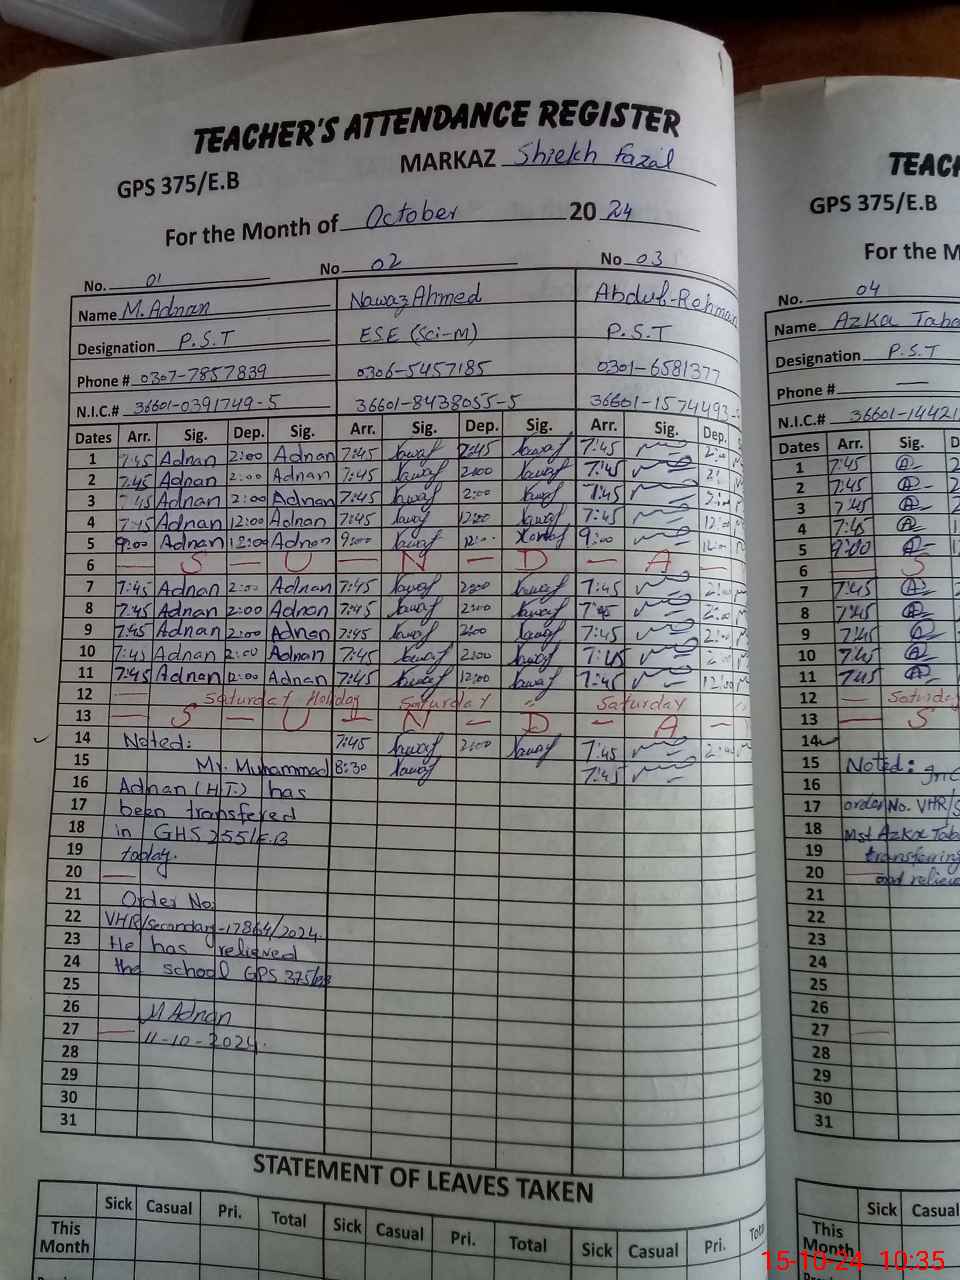 TEACHER'S ATTENDANCE REGISTER
MARKAZ Shiekh Fazal
GPS 375/E.B
For the Month of October 2024
No. 01 No 02 No 03
Name M. Adnan Nawaz Ahmed Abdul-Rehman
Designation P.S.T ESE (Sci-M) P.S.T
Phone # 0307-7857839 0306-5457185 0301-6581377
N.I.C.# 36601-0391749-5 36601-8438055-5 36601-1574493-
Dates Arr. Sig. Dep. Sig. Arr. Sig. Dep. Sig. Arr. Sig. Dep.
1 7:45 Adnan 2:00 Adnan 7:45 Nawaf 2:45 Nawaf 7:45
2 7:45 Adnan 2:00 Adnan 7:45 Nawaf 2:00 Nawaf 7:45
3 7:45 Adnan 2:00 Adnan 7:45 Nawaf 2:00 Nawaf 7:45
4 7:45 Adnan 12:00 Adnan 7:45 Nawaf 12:00 Nawaf 7:45
5 9:00 Adnan 12:00 Adnan 9:00 Nawaf 12:00 Nawaf 9:00
6 — S — U — N — D — A —
7 7:45 Adnan 2:00 Adnan 7:45 Nawaf 2:00 Nawaf 7:45
8 7:45 Adnan 2:00 Adnan 7:45 Nawaf 2:00 Nawaf 7:45
9 7:45 Adnan 2:00 Adnan 7:45 Nawaf 2:00 Nawaf 7:45
10 7:45 Adnan 2:00 Adnan 7:45 Nawaf 2:00 Nawaf 7:45
11 7:45 Adnan 12:00 Adnan 7:45 Nawaf 12:00 Nawaf 7:45 12:00
12 — Saturday Holiday Saturday " Saturday
13 — S — U — N — D — A —
14 Noted: 7:45 Nawaf 2:00 Nawaf 7:45 2:00
15 Mr. Muhammad 8:30 Nawaf 7:45
16 Adnan (H.T.) has
17 been transfered
18 in GHS 255/E.B
19 today.
20 —
21 Order No:
22 VHR/Secondary-17864/2024.
23 He has relieved
24 the school GPS 375/EB
25
26 M Adnan
27 — 11-10-2024.
28
29
30
31
STATEMENT OF LEAVES TAKEN
Sick Casual Pri. Total Sick Casual Pri. Total Sick Casual Pri. Tot
This Month
TEACH
GPS 375/E.B
For the M
No. 04
Name Azka Taba
Designation P.S.T
Phone # —
N.I.C.# 36601-14421
Dates Arr. Sig. D
1 7:45
2 7:45
3 7:45
4 7:45
5 9:00
6 — S
7 7:45
8 7:45
9 7:45
10 7:45
11 7:45
12 — Saturda
13 — S
14
15 Noted:
16
17 order No. VHR/S
18 Mst Azka Tab
19 transferring
20 and relieve
21
22
23
24
25
26
27 —
28
29
30
31
Sick Casual
This Month
15-10-24 10:35